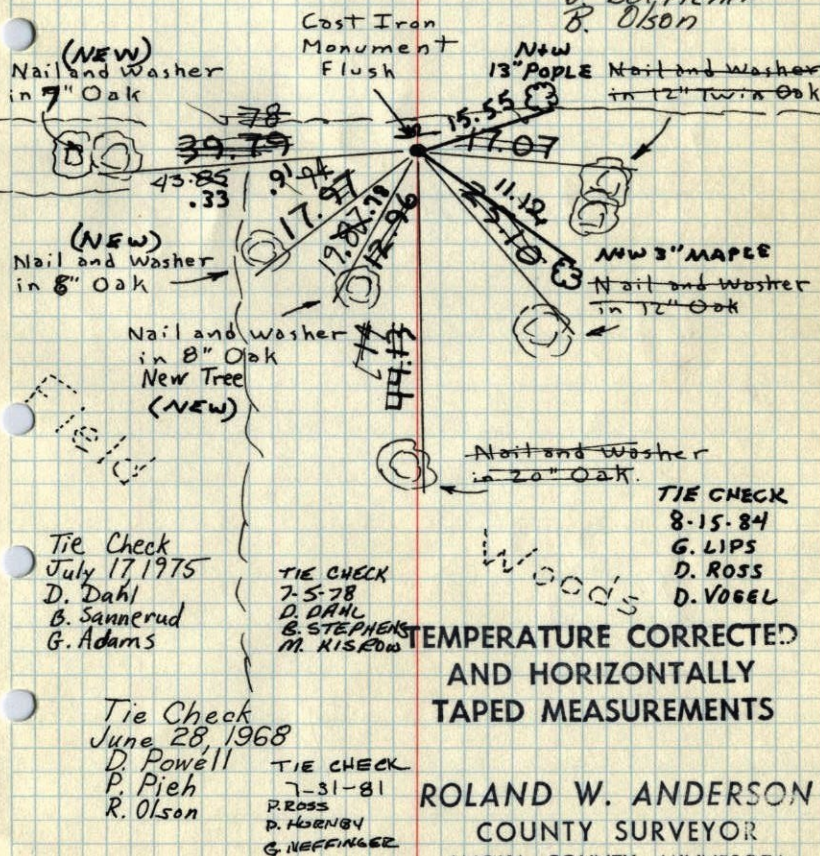 B. Olson
Cast Iron
Monument
Flush
(NEW)
Nail and Washer
in 7" Oak
N+W
13" POPLE
Nail and Washer
in 12" Twin Oak
78
39.79
43.85
.33
15.55
17.07
.91
.94
17.97
19.87
.78
12.96
11.12
23.10
(NEW)
Nail and Washer
in 8" Oak
N+W 3" MAPLE
Nail and Washer
in 12" Oak
Nail and Washer
in 8" Oak
New Tree
(NEW)
44.43
Field
Nail and Washer
in 20" Oak.
Woods
TIE CHECK
8-15-84
G. LIPS
D. ROSS
D. VOGEL
Tie Check
July 17 1975
D. Dahl
B. Sannerud
G. Adams
TIE CHECK
7-5-78
D. DAHL
B. STEPHENS
M. KISROW
TEMPERATURE CORRECTED
AND HORIZONTALLY
TAPED MEASUREMENTS
Tie Check
June 28, 1968
D. Powell
P. Pieh
R. Olson
TIE CHECK
7-31-81
D. ROSS
D. HORNBY
G. NEFFINGER
ROLAND W. ANDERSON
COUNTY SURVEYOR